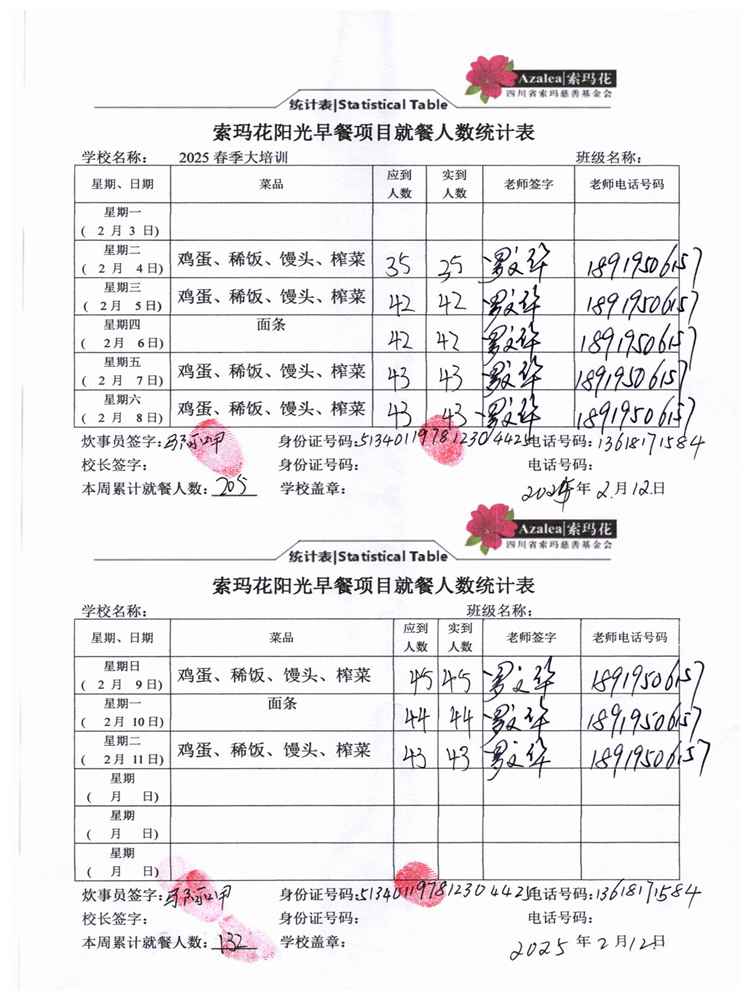 Azalea|索玛花
四川省索玛慈善基金会
统计表|Statistical Table
索玛花阳光早餐项目就餐人数统计表
学校名称： 2025春季大培训 班级名称：
星期、日期 菜品 应到人数 实到人数 老师签字 老师电话号码
星期一
( 2 月 3 日)
星期二
( 2 月 4日) 鸡蛋、稀饭、馒头、榨菜 35 35 罗文华 18919506157
星期三
( 2月 5日) 鸡蛋、稀饭、馒头、榨菜 42 42 罗文华 18919506157
星期四
( 2月 6日) 面条 42 42 罗文华 18919506157
星期五
( 2 月 7日) 鸡蛋、稀饭、馒头、榨菜 43 43 罗文华 18919506157
星期六
( 2月 8日) 鸡蛋、稀饭、馒头、榨菜 43 43 罗文华 18919506157
炊事员签字： 身份证号码:513401197812304425 电话号码:13618171584
校长签字： 身份证号码： 电话号码：
本周累计就餐人数：205 学校盖章： 2025年2月12日
Azalea|索玛花
四川省索玛慈善基金会
统计表|Statistical Table
索玛花阳光早餐项目就餐人数统计表
学校名称： 班级名称：
星期、日期 菜品 应到人数 实到人数 老师签字 老师电话号码
星期日
( 2 月 9日) 鸡蛋、稀饭、馒头、榨菜 45 45 罗文华 18919506157
星期一
( 2月 10日) 面条 44 44 罗文华 18919506157
星期二
( 2月 11日) 鸡蛋、稀饭、馒头、榨菜 43 43 罗文华 18919506157
星期
( 月 日)
星期
( 月 日)
星期
( 月 日)
炊事员签字： 身份证号码:513401197812304425 电话号码:13618171584
校长签字： 身份证号码： 电话号码：
本周累计就餐人数：132 学校盖章： 2025 年2月12日